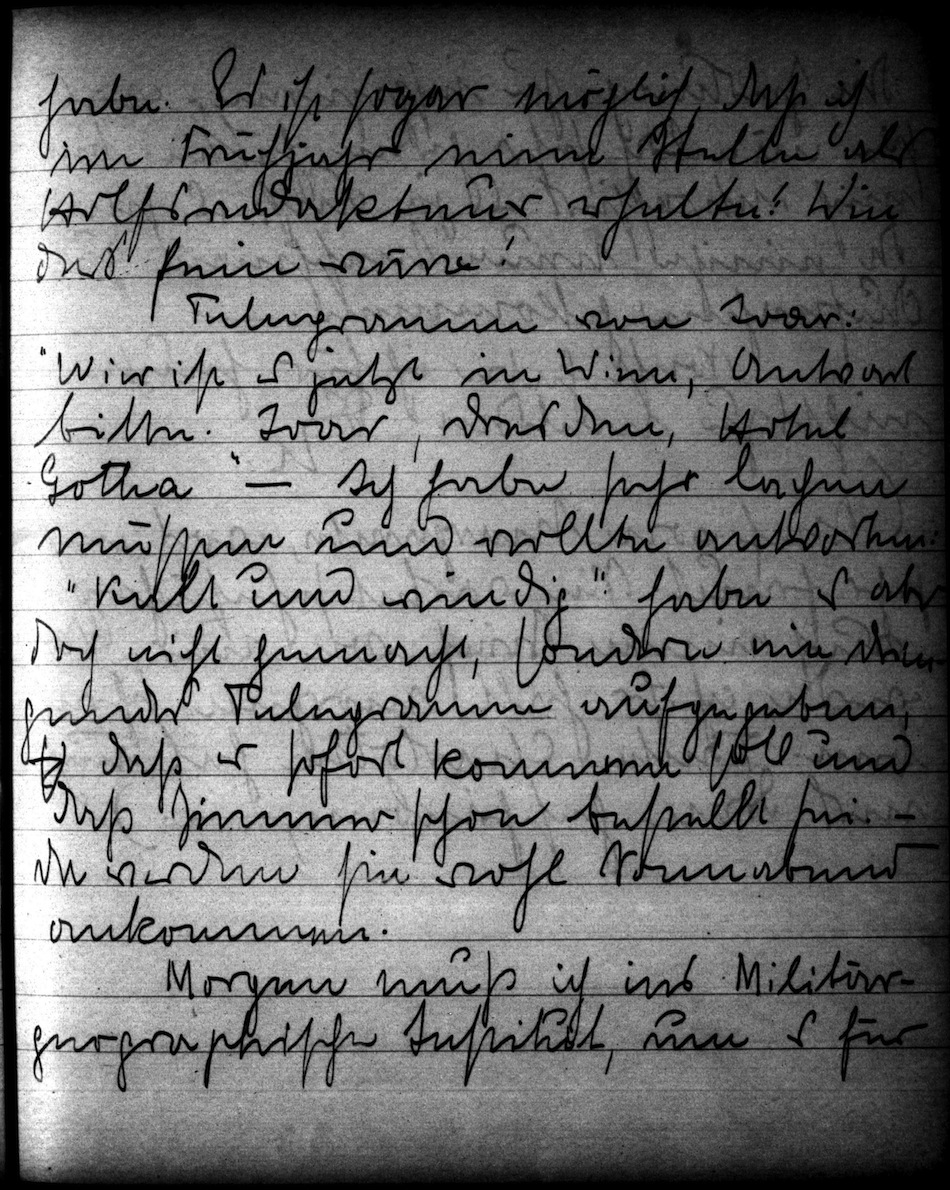 habe. Es ist sogar möglich, daß ich
im Frühjahr eine Stelle als
Hilfsredakteur erhalte! Wie
das fein wäre!
Telegramm von Ivar:
"Wie ist es jetzt in Wien, Antwort
bitte. Ivar, Dresden, Hotel
Gotha" — Ich habe sehr lachen
müssen und wollte antworten:
"Kalt und windig" habe es aber
doch nicht gemacht, sondern ein drin-
gendes Telegramm aufgegeben,
daß er sofort kommen soll und
daß Zimmer schon bestellt sei. —
da werden sie wohl Sonnabend
ankommen.
Morgen muß ich ins Militär-
geographische Institut, um es für